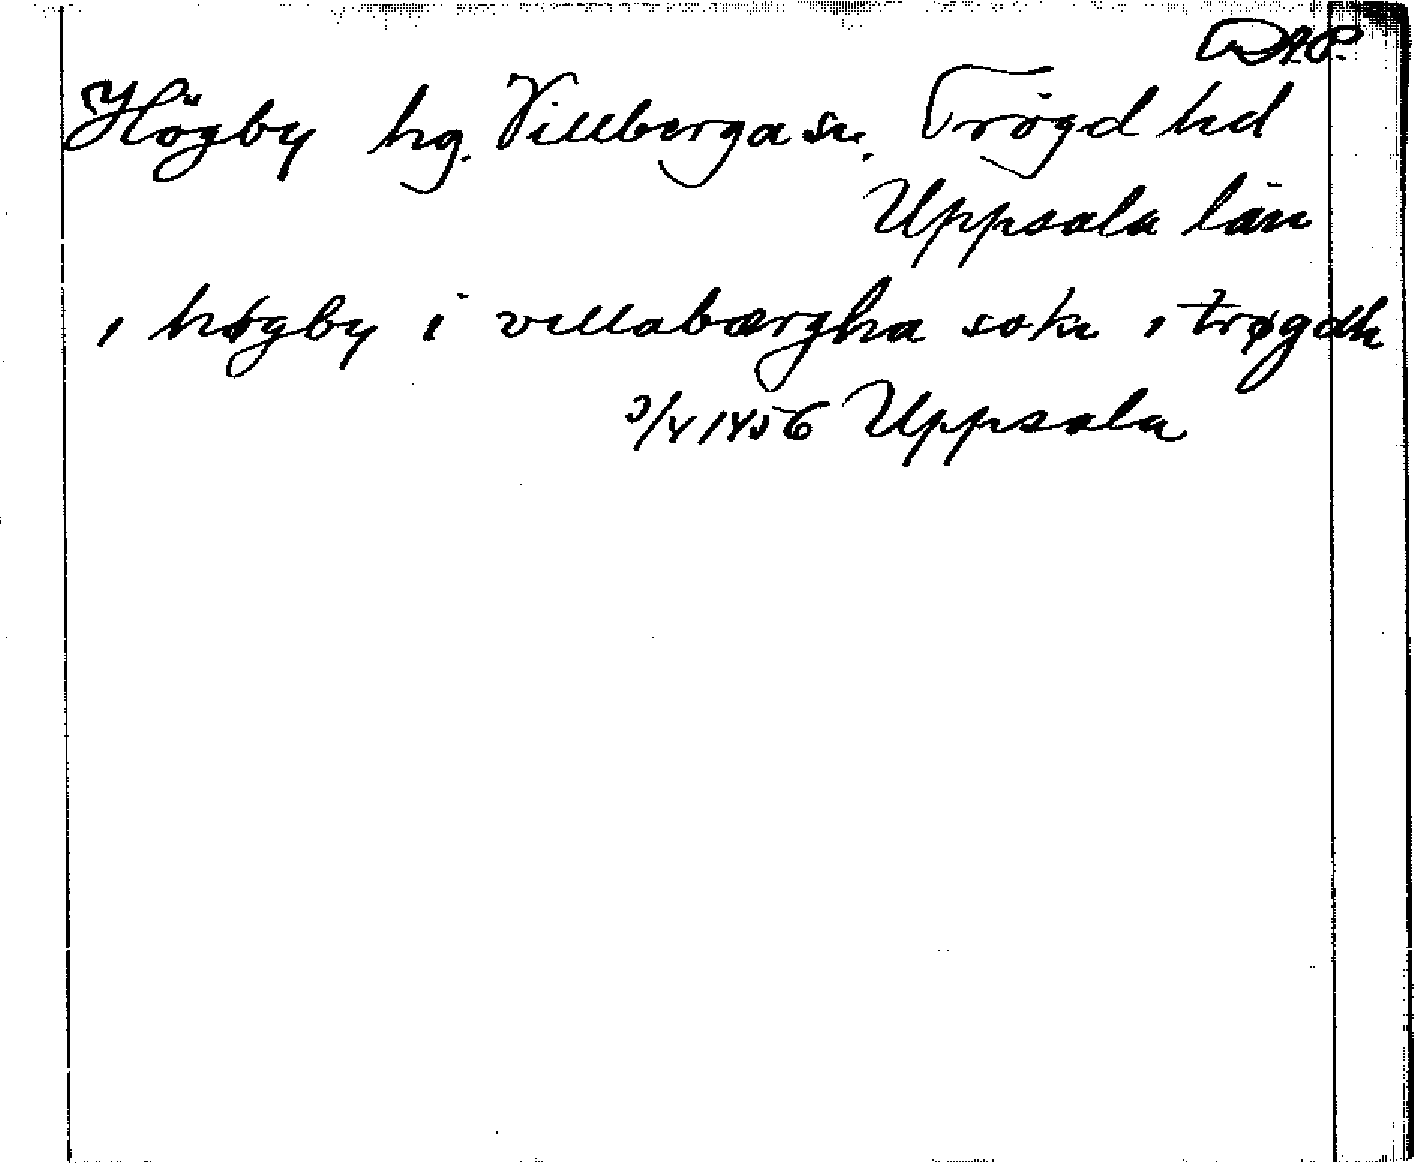 Högby hg. Villberga sn. Trögd hd
Uppsala län
i høgby i villabærgha sokn i trøgdh
3/4 1456 Uppsala